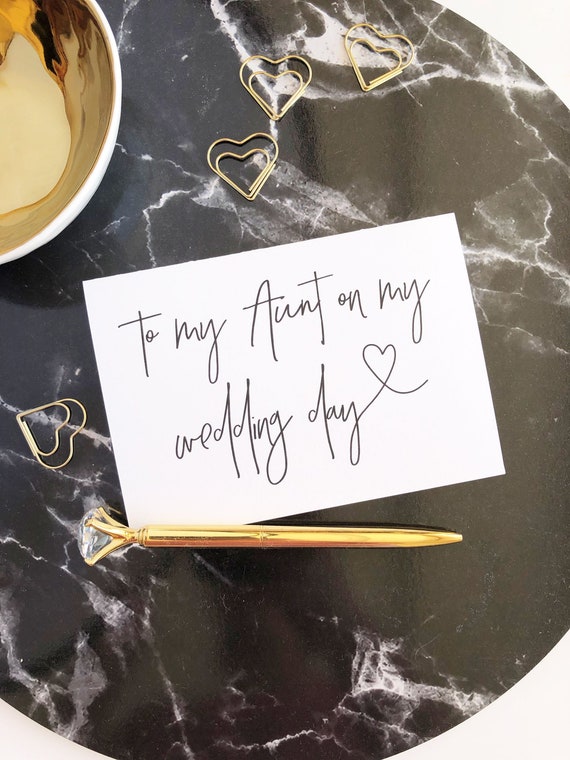 to my Aunt on my
wedding day